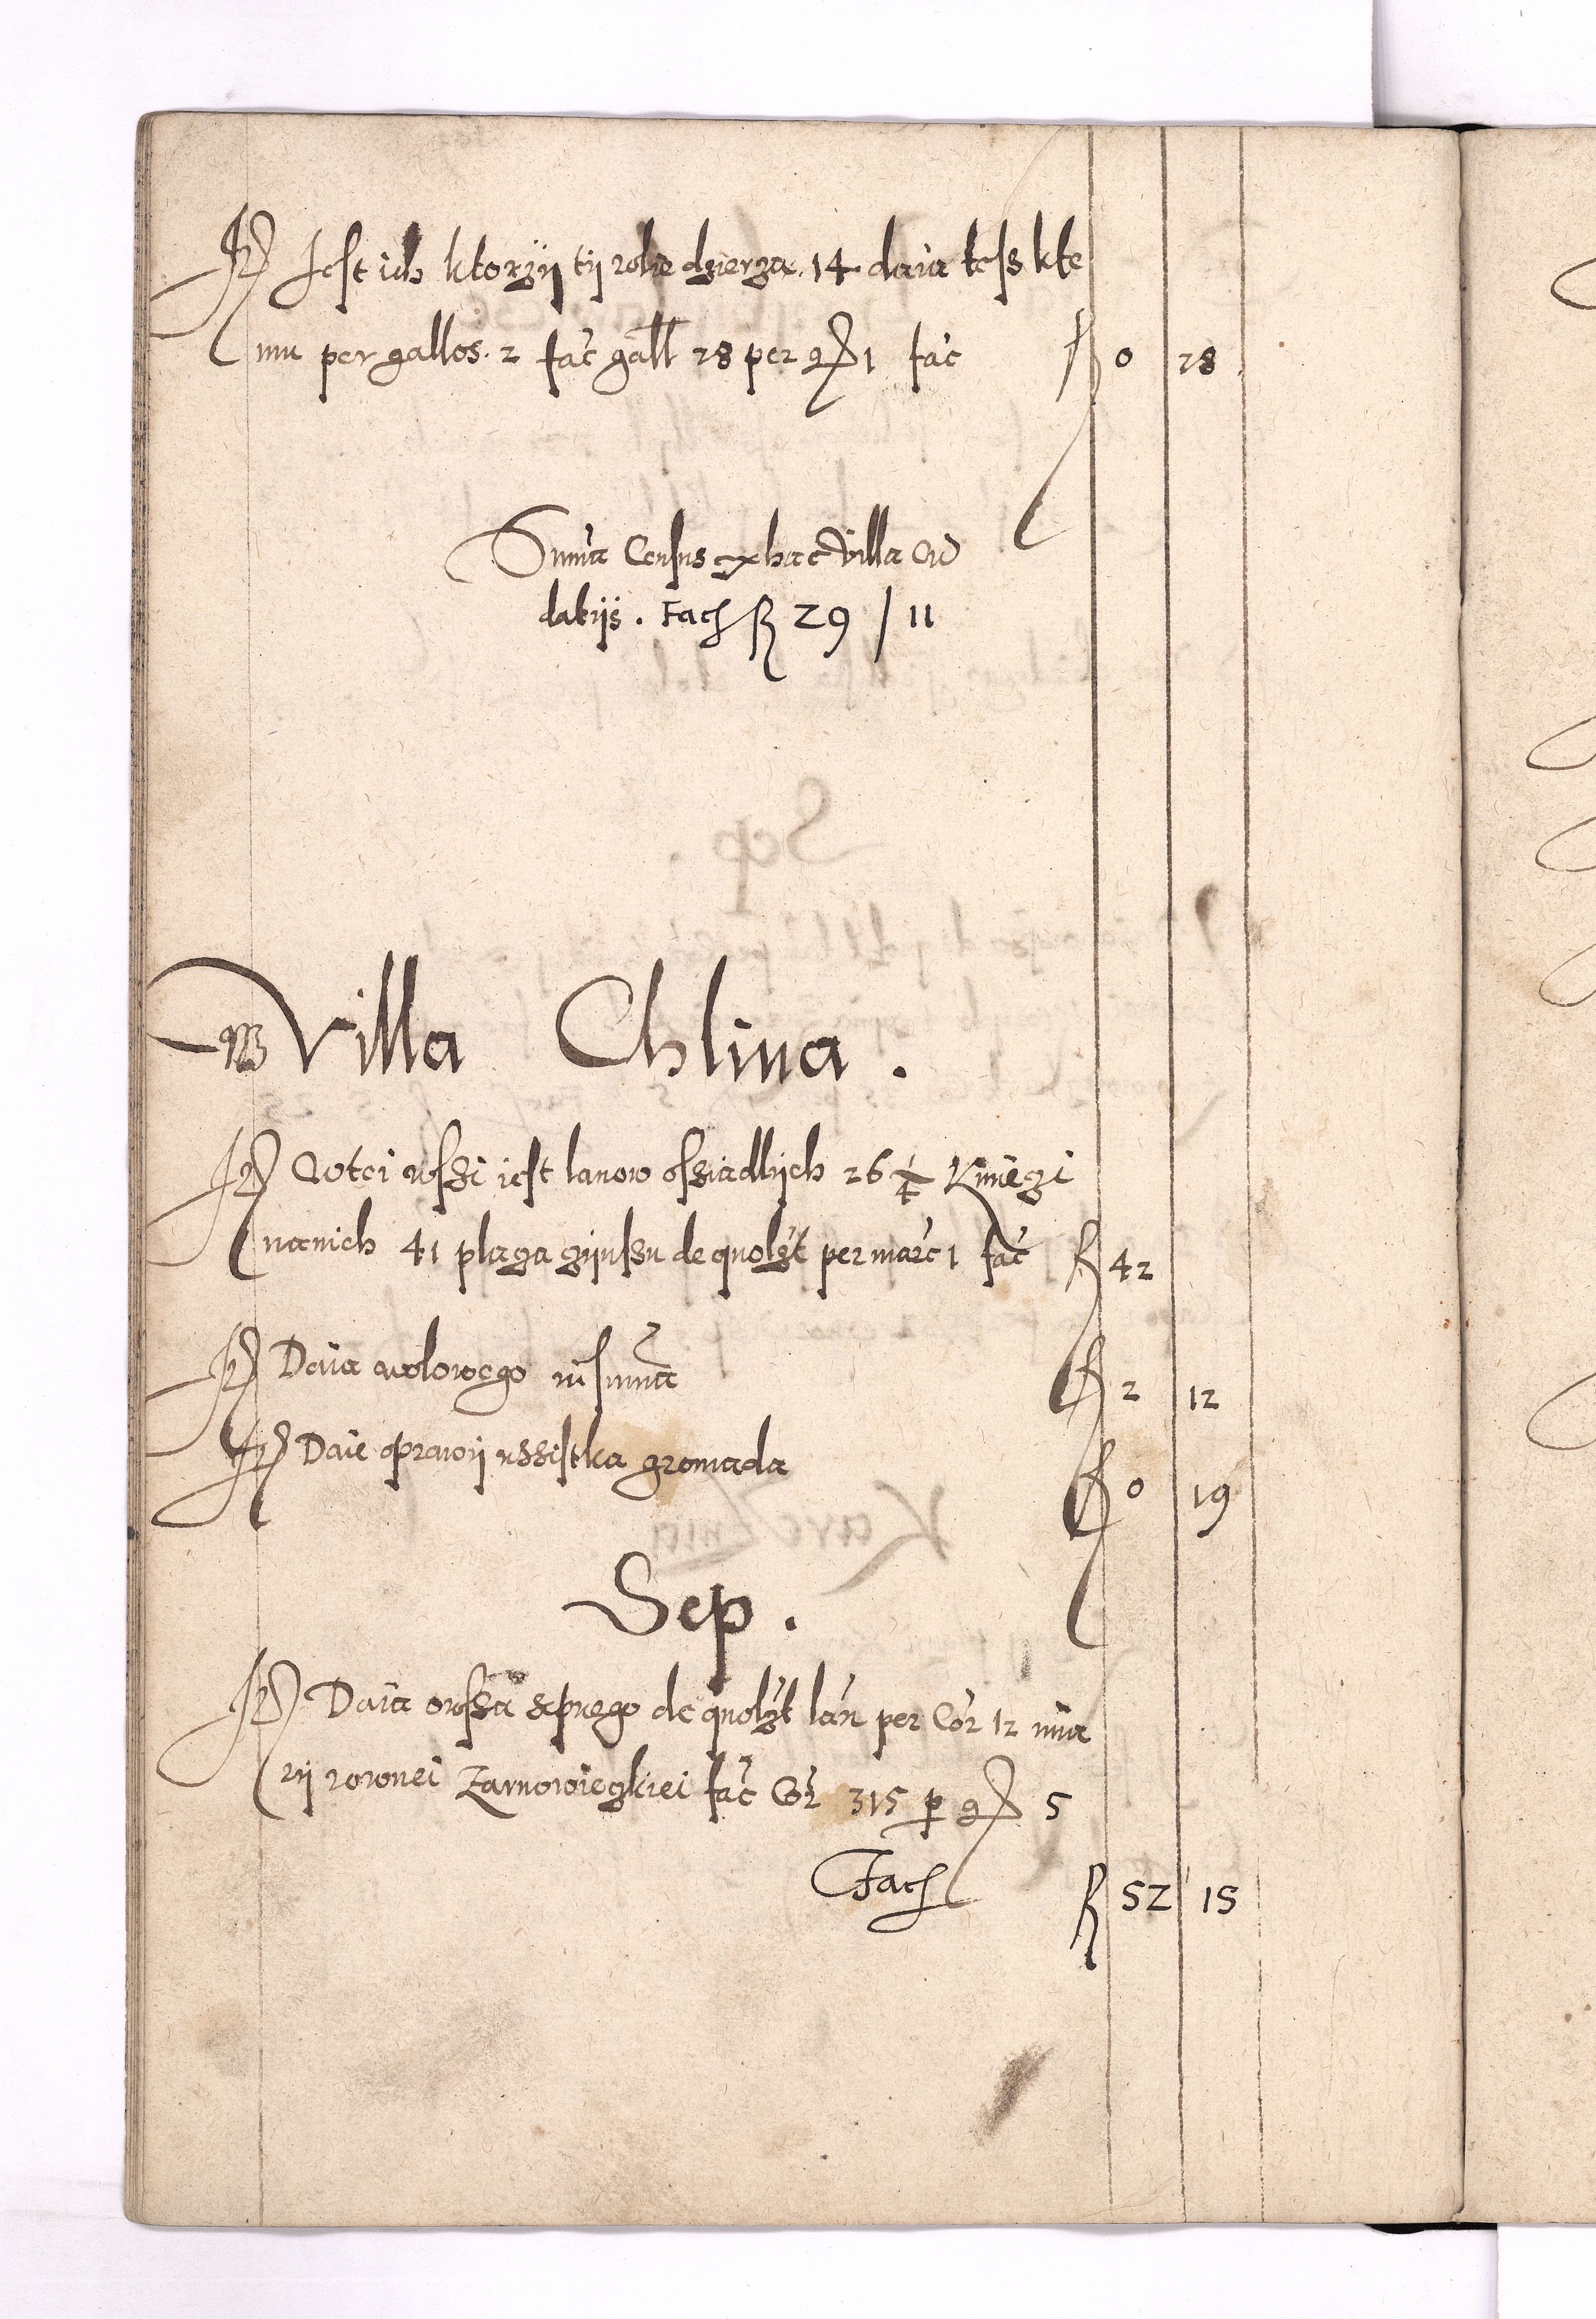 Jest ich ktorzÿ tÿ rolie dzierza. 14 daia tess kte
mu per gallos. 2 fac̃ gall 28 per g̃ 1 fac̃ R 0 28
Sum̃a Census ex hac villa Cũ
datÿs. Fac̃ R 29 / 11
Villa Chlina.
Wtei wssi iest lanow ossiadlÿch 26 1/4 Kmiezi
nanich 41 placza czÿnssu de quolȝt per marc̃ 1 fac̃ R 42
Daia wolowego in sum̃a R 2 12
Daie oprawÿ wssistka gromada R 0 19
Sep.
Daia owssa sepnego de quolȝt lan per Cor 12 mia
rÿ rownei Zarnowieczkiei fac̃ Cor 315 p g̃ 5
Fac̃ R 52 15